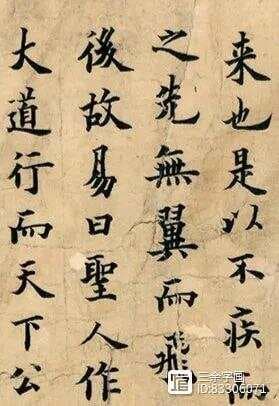 来也是以不疾
之先無翼而飛
後故易曰聖人作
大道行而天下公
三余字画
ID:83306071